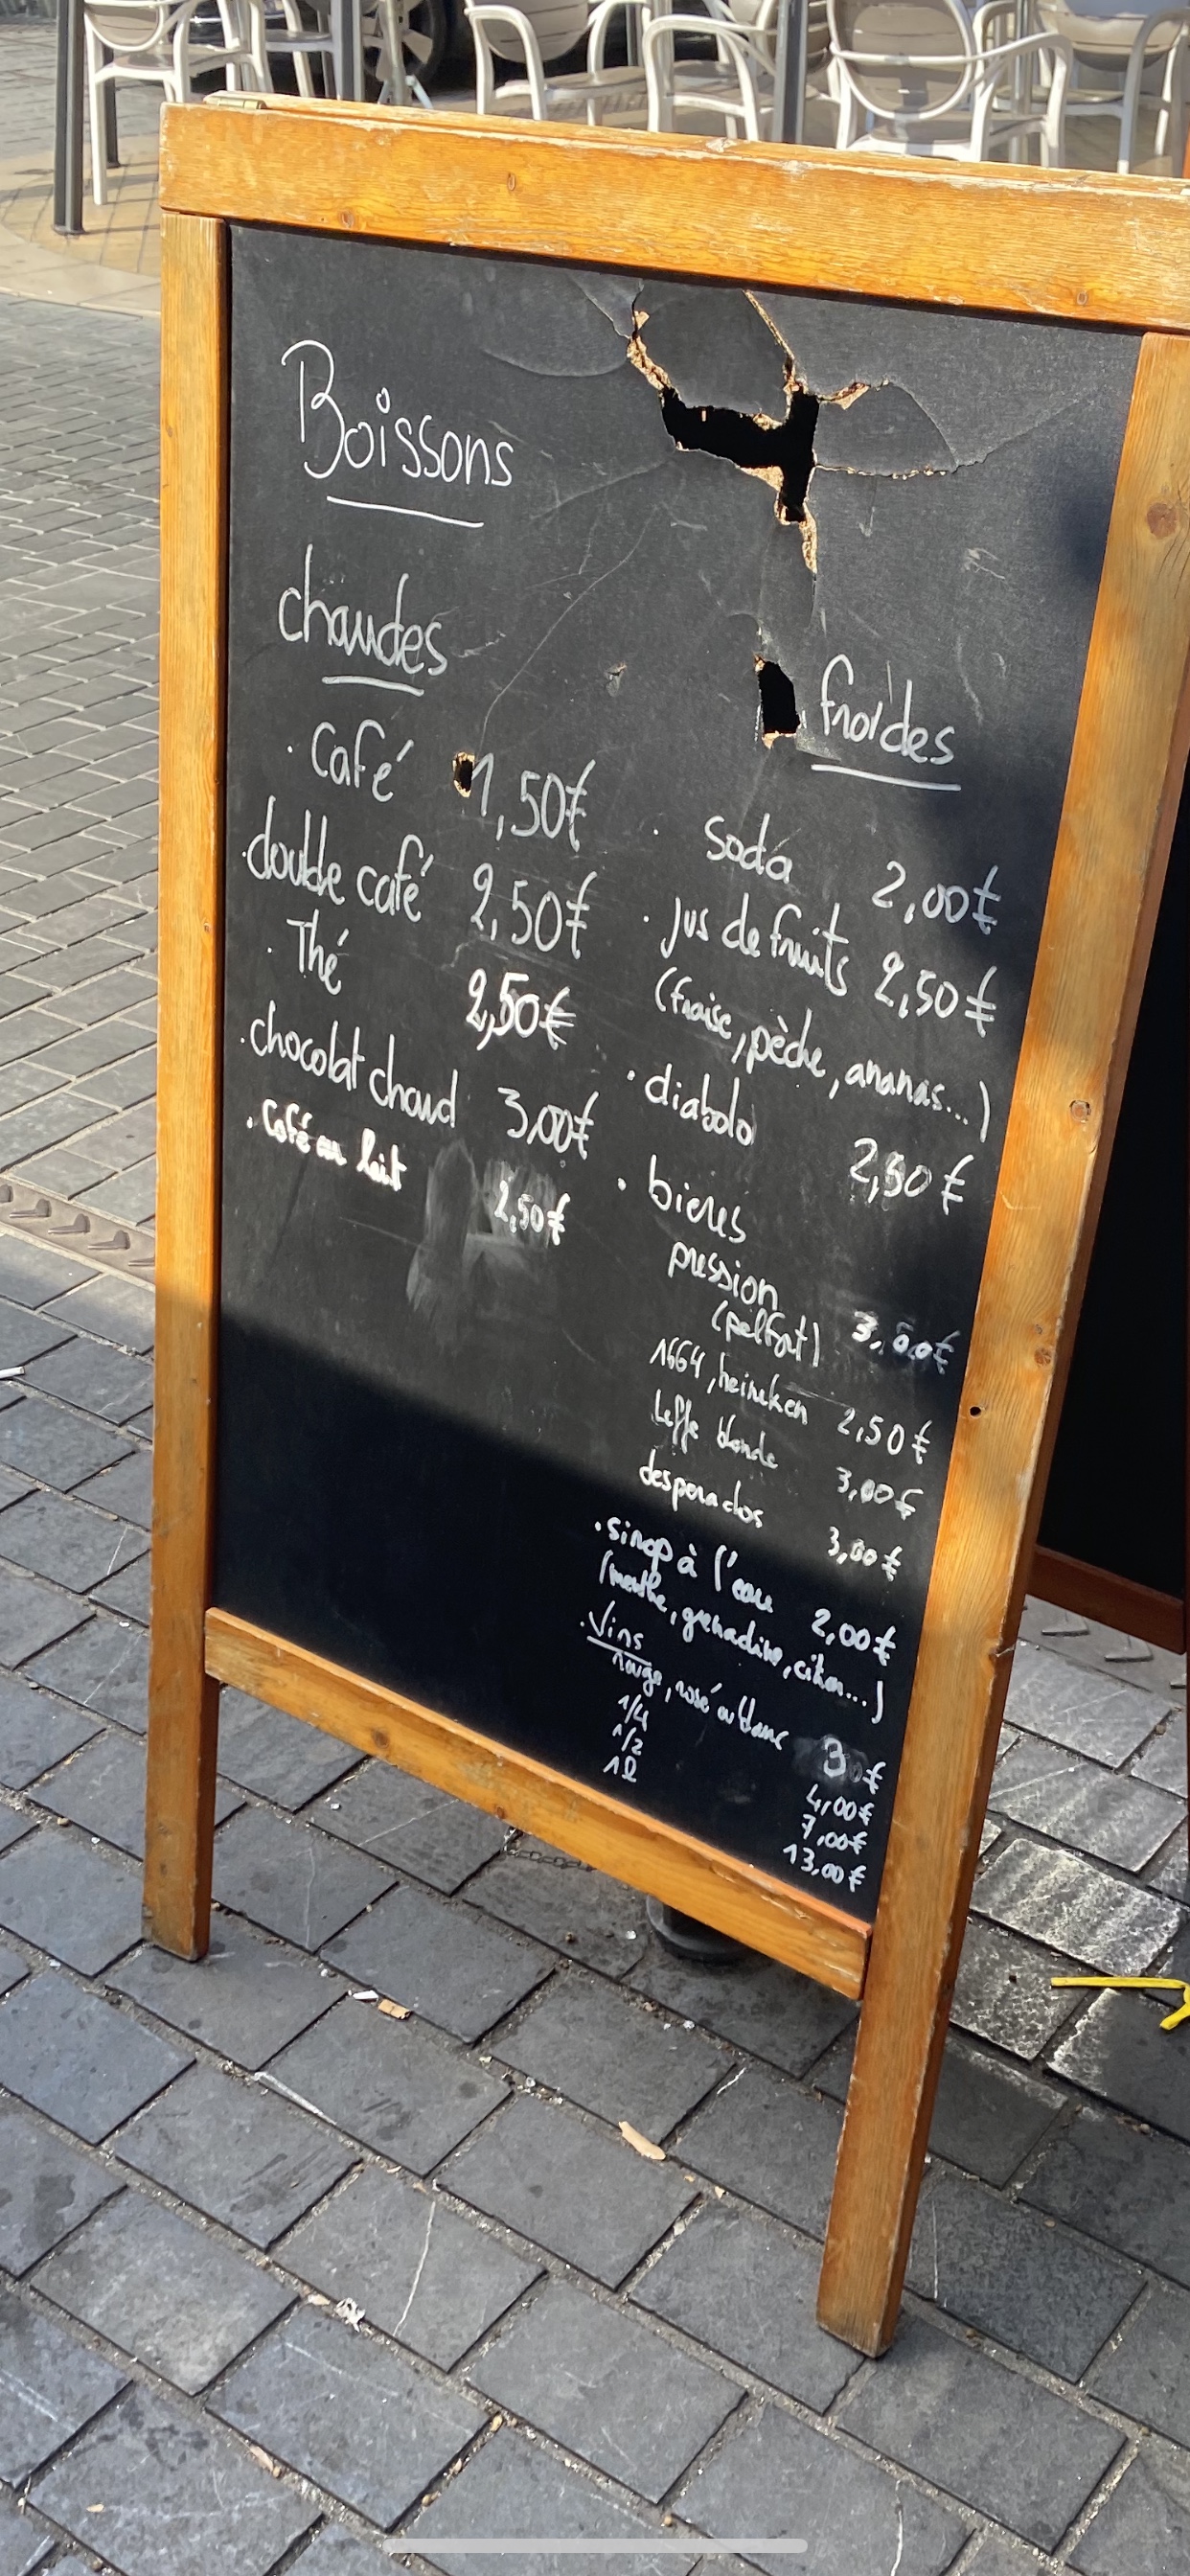 Boissons
chaudes
· Café 1,50€
· double café 2,50€
· Thé 2,50€
· chocolat chaud 3,00€
· Café au lait 2,50€
froides
· soda 2,00€
· jus de fruits 2,50€
(fraise, pèche, ananas...)
· diabolo 2,50€
· bieres
pression
(pelfort) 3,00€
1664, heineken 2,50€
Leffe blonde 3,00€
desperados 3,00€
· sirop à l'eau 2,00€
(menthe, grenadine, citron...)
· Vins
rouge, rosé ou blanc 3€
1/4 4,00€
1/2 7,00€
1l 13,00€